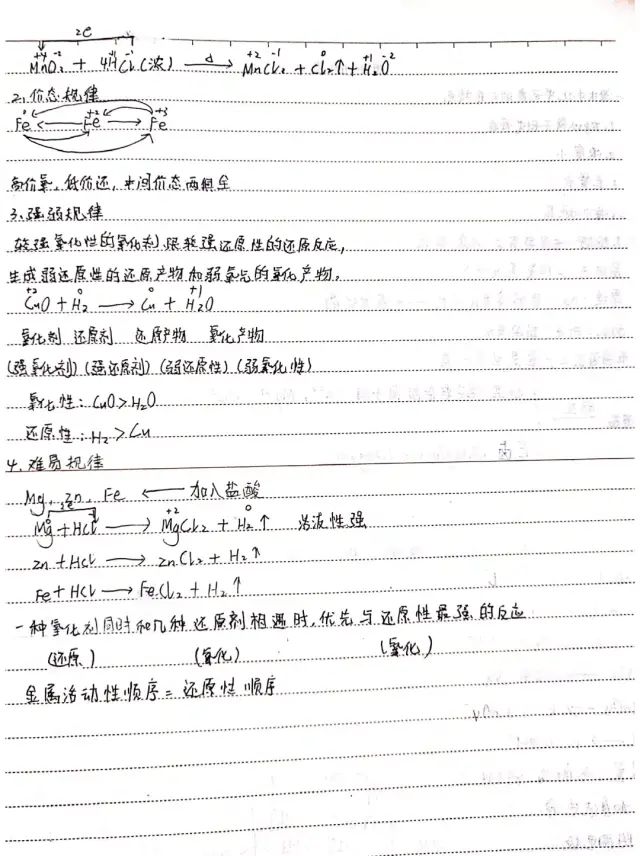 2e
+4 -2 +1 -1 +2 -1 0 +1 -2
MnO₂ + 4HCl(浓) —△→ MnCl₂ + Cl₂↑ + H₂O
2、价态规律
0 +2 +3
Fe ← Fe → Fe
高价氧，低价还，中间价态两相全
3、强弱规律
较强氧化性的氧化剂跟较强还原性的还原反应，
生成弱还原性的还原产物和弱氧化的氧化产物。
+2 0 0 +1
CuO + H₂ → Cu + H₂O
氧化剂 还原剂 还原产物 氧化产物
(强氧化剂) (强还原剂) (弱还原性) (弱氧化性)
氧化性：CuO > H₂O
还原性：H₂ > Cu
4、难易规律
Mg、Zn、Fe ← 加入盐酸
2e
0 +1 +2 0
Mg + HCl → MgCl₂ + H₂↑ 活泼性强
Zn + HCl → ZnCl₂ + H₂↑
Fe + HCl → FeCl₂ + H₂↑
一种氧化剂同时和几种还原剂相遇时，优先与还原性最强的反应
(还原) (氧化) (氧化)
金属活动性顺序 = 还原性顺序